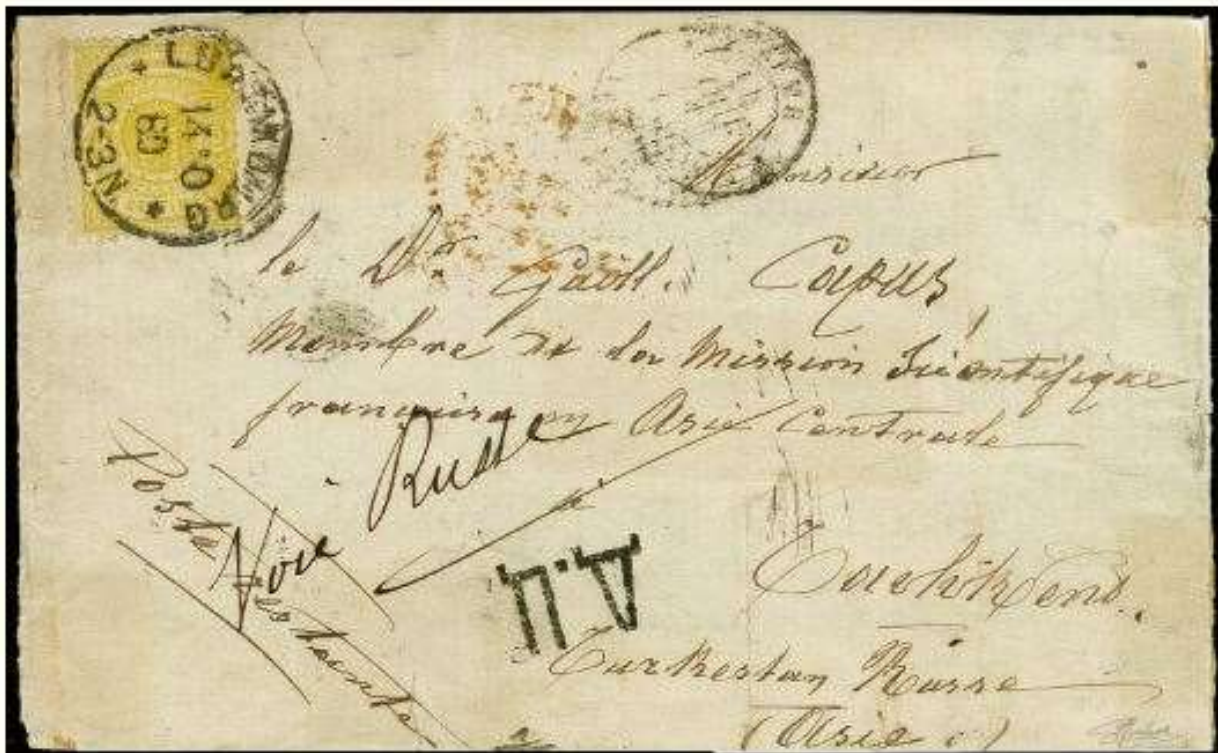 LUXEMBURG
14 10
80
2-3N
Monsieur
le Dr Guill. Capus
Membre de la Mission Scientifique
française en Asie Centrale
Voie Russe
Poste Restante
Tachkend.
Turkestan Russe
(Asie)